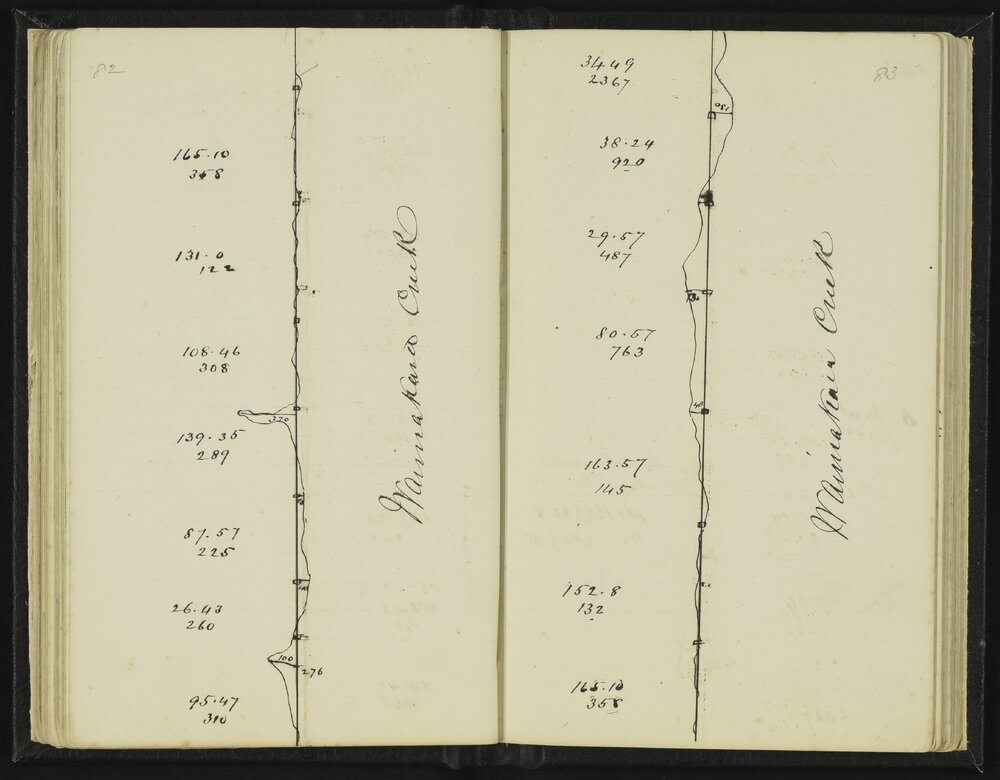 82
165.10
358
131.0
122
108.46
308
320
139.35
289
87.57
225
26.43
260
100
276
95.47
310
Waimakara Creek
83
34.49
2367
130
38.24
920
29.57
487
80.57
763
48
163.57
145
152.8
132
165.10
358
Waimakara Creek